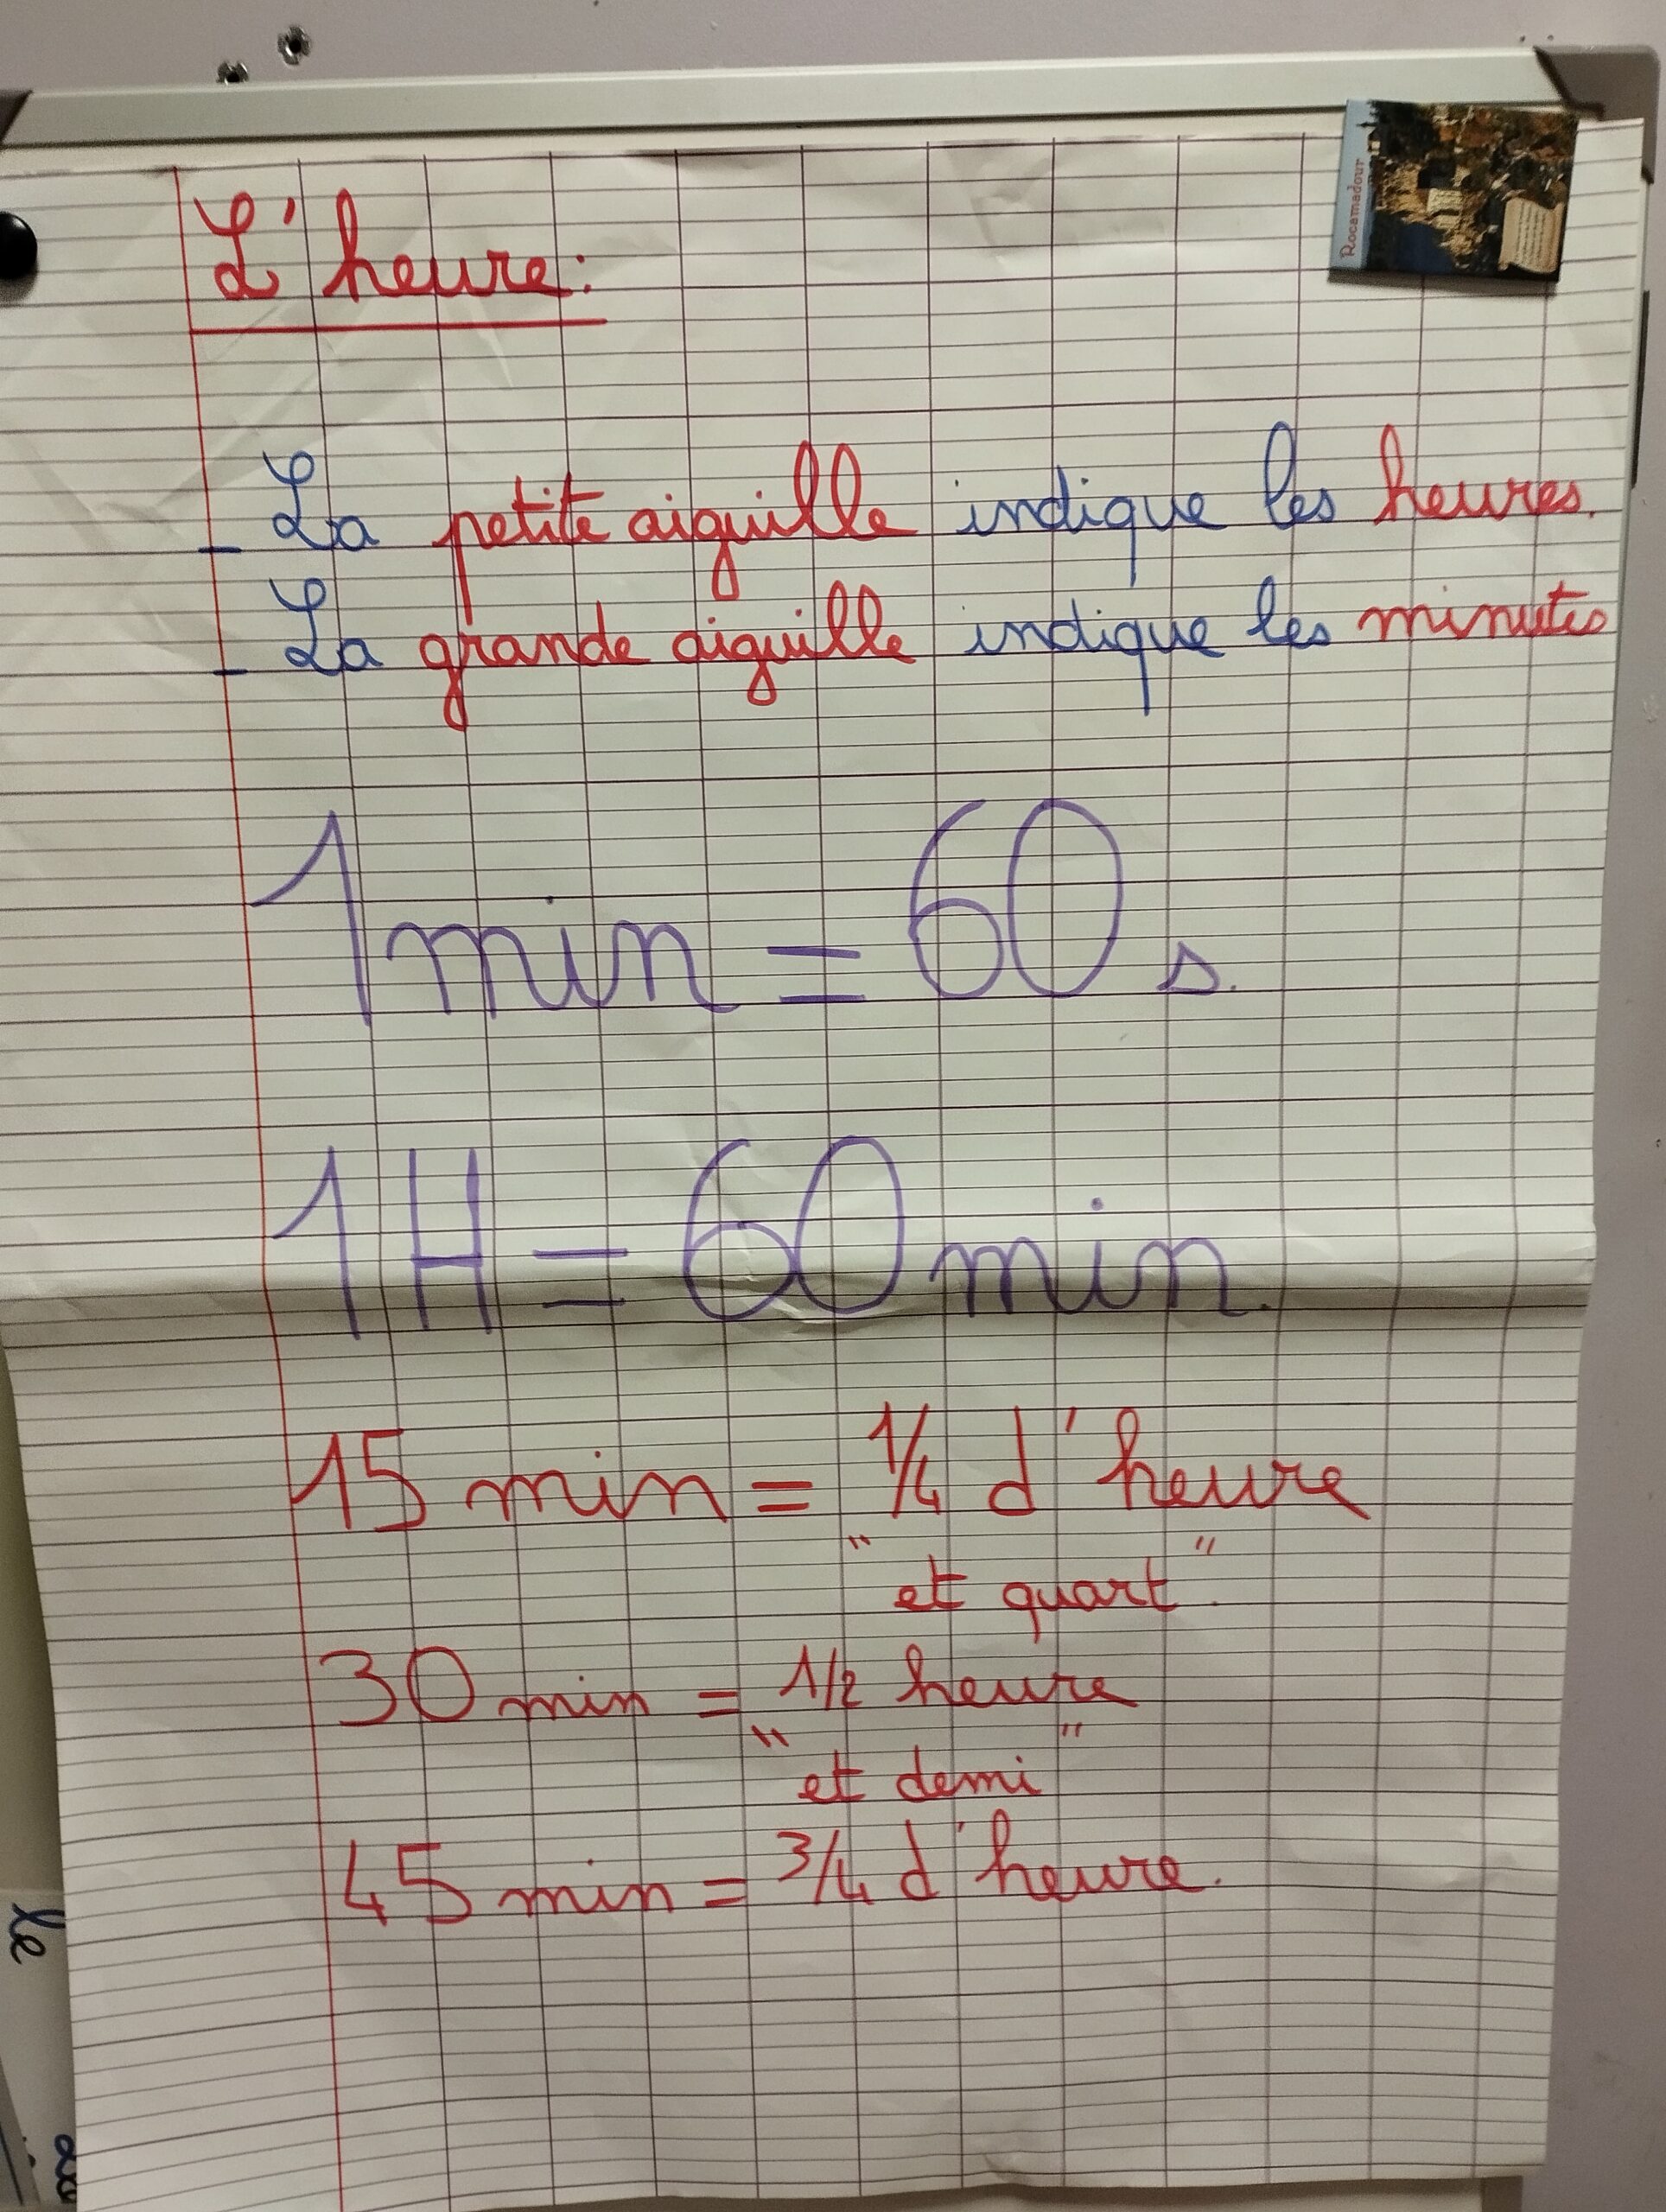 L'heure:
Rocamadour
- La petite aiguille indique les heures.
- La grande aiguille indique les minutes
1 min = 60 s.
1 H = 60 min.
15 min = 1/4 d'heure
"et quart".
30 min = 1/2 heure
"et demi"
45 min = 3/4 d'heure.
le